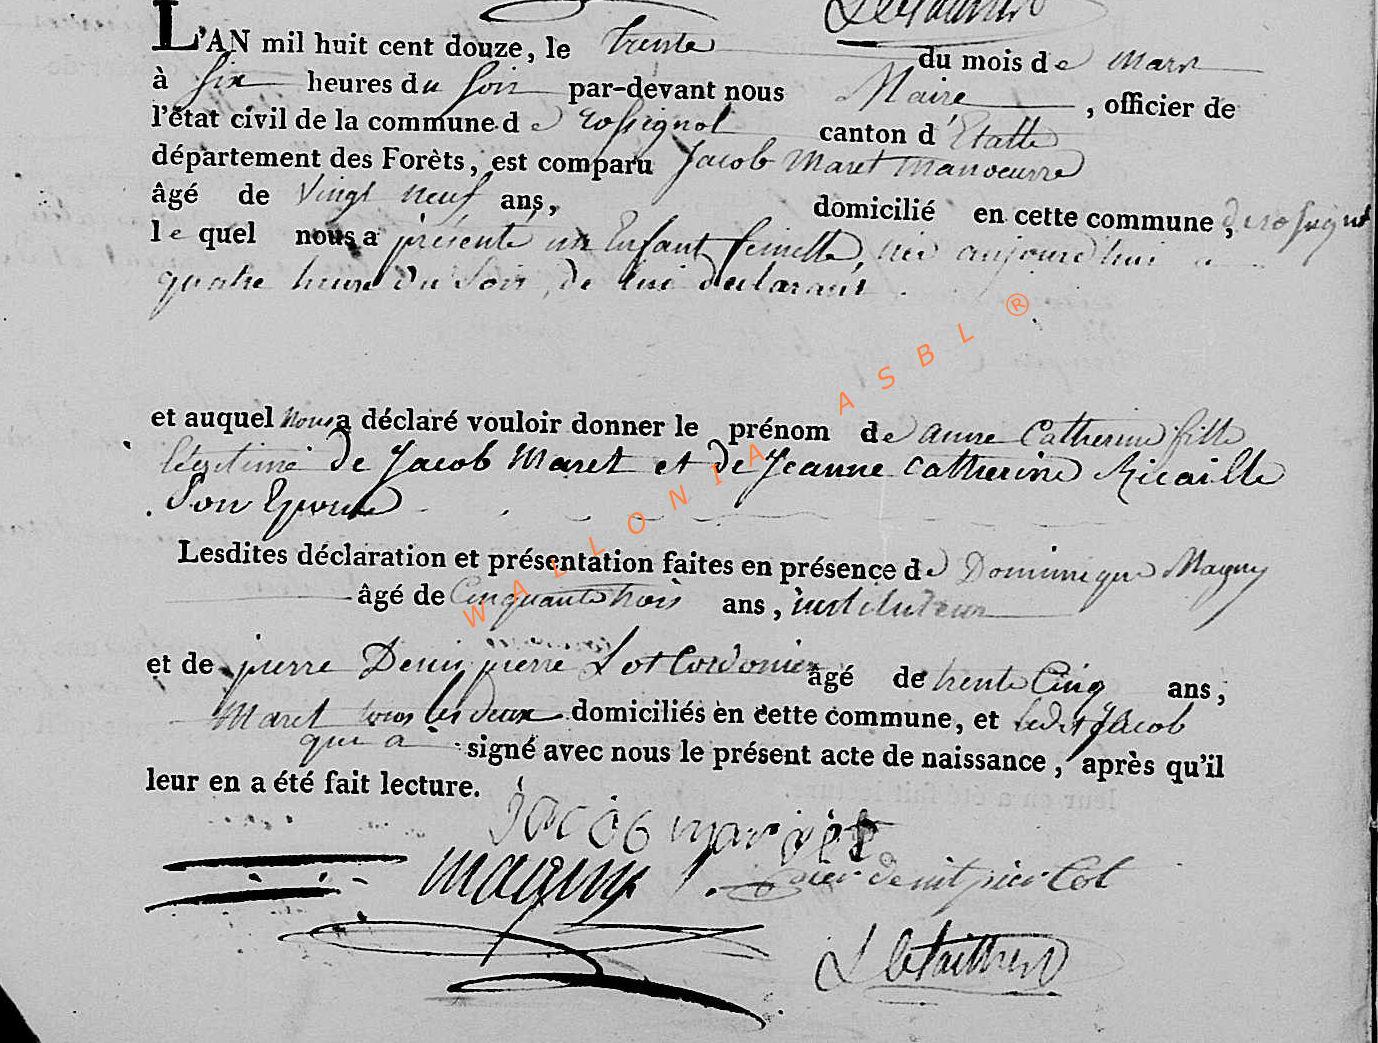 L'AN mil huit cent douze, le trente du mois de mars
à six heures du soir par-devant nous Maire, officier de
l'état civil de la commune de rossignol canton d'Etalle
département des Forêts, est comparu Jacob Maret manoeuvre
âgé de vingt neuf ans, domicilié en cette commune, de rossignol
le quel nous a présenté un Enfant femelle, née aujourd'hui a
quatre heure du soir, de lui declarant.
et auquel nous a déclaré vouloir donner le prénom de anne Catherine fille
légitime de Jacob Maret et de Jeanne Catherine Ricaille
Son Epouse
Lesdites déclaration et présentation faites en présence de Dominique Magny
âgé de Cinquante trois ans, instituteur
et de pierre Denis pierre Lot Cordonier âgé de trente Cinq ans,
tous les deux domiciliés en cette commune, et ledit Jacob
Maret qui a signé avec nous le présent acte de naissance, après qu'il
leur en a été fait lecture.
jacob
magny
WALLONIA ASBL ®